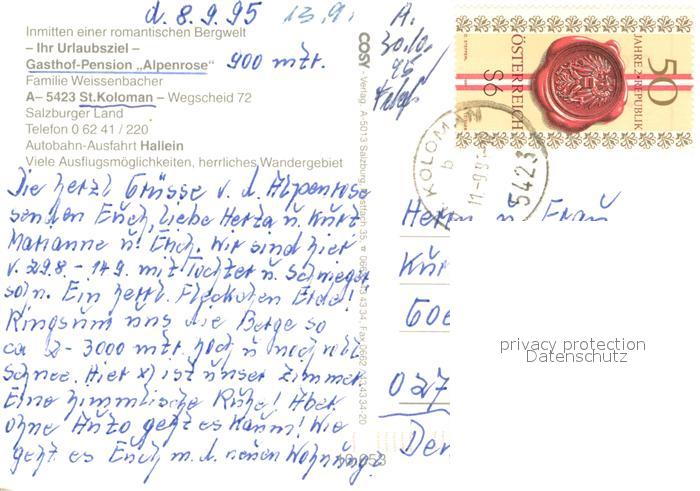 d. 8.9.95 13.9.
Inmitten einer romantischen Bergwelt
– Ihr Urlaubsziel –
Gasthof-Pension „Alpenrose“ 900 mtr.
Familie Weissenbacher
A– 5423 St.Koloman – Wegscheid 72
Salzburger Land
Telefon 0 62 41 / 220
Autobahn-Ausfahrt Hallein
Viele Ausflugsmöglichkeiten, herrliches Wandergebiet
Die herzl Grüsse v. d. Alpenrose
senden Euch, liebe Herta u. Kurt
Marianne u. Erich. Wir sind hier
v. 29.8. - 14.9. mit Tochter u. Schwieger
sohn. Ein herrl. Fleckchen Erde!
Ringsum uns die Berge so
ca 2-3000 mtr. hoch u noch voll
Schnee. Hier x) ist unser Zimmer
Eine himmlische Ruhe! Aber
ohne Auto geht es kaum! Wie
geht es Euch m. d. neuen Wohnung?
A.
30.10.
95
COSY - Verlag, A-5013 Salzburg
50
JAHRE 2. REPUBLIK
ÖSTERREICH
S6
KOLOMAN
b
5423
Herrn u. Frau
Kur
027
Der
privacy protection
Datenschutz